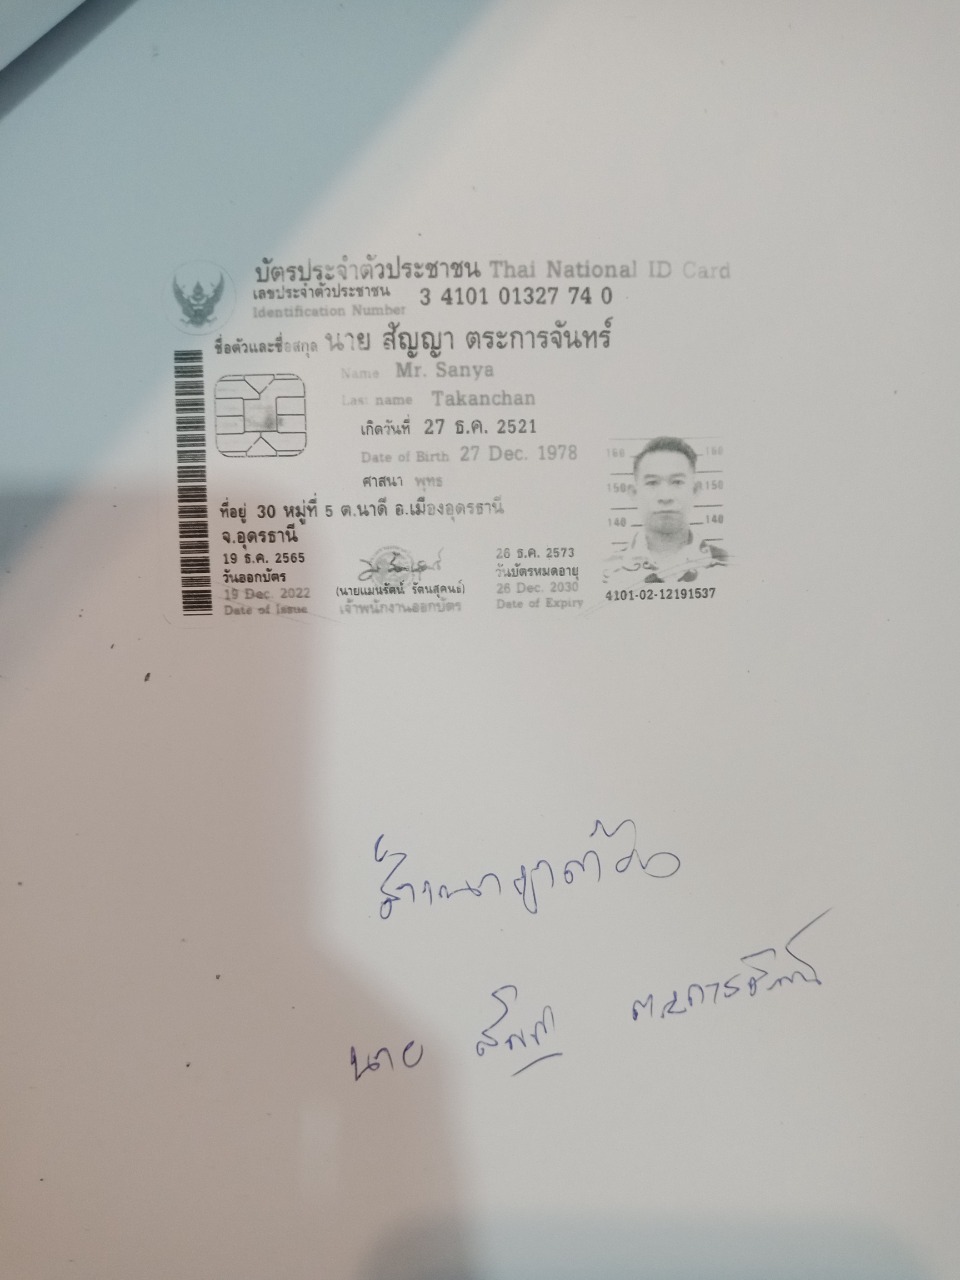 บัตรประจำตัวประชาชน Thai National ID Card
เลขประจำตัวประชาชน
Identification Number
3 4101 01327 74 0
ชื่อตัวและชื่อสกุล นาย สัญญา ตระการจันทร์
Name Mr. Sanya
Last name Takanchan
เกิดวันที่ 27 ธ.ค. 2521
Date of Birth 27 Dec. 1978
ศาสนา พุทธ
ที่อยู่ 30 หมู่ที่ 5 ต.นาดี อ.เมืองอุดรธานี
จ.อุดรธานี
19 ธ.ค. 2565
วันออกบัตร
19 Dec. 2022
Date of Issue
(นายแมนรัตน์ รัตนสุคนธ์)
เจ้าพนักงานออกบัตร
26 ธ.ค. 2573
วันบัตรหมดอายุ
26 Dec. 2030
Date of Expiry
160 160
150 150
140 140
4101-02-12191537
นาย สัญญา ตระการจันทร์